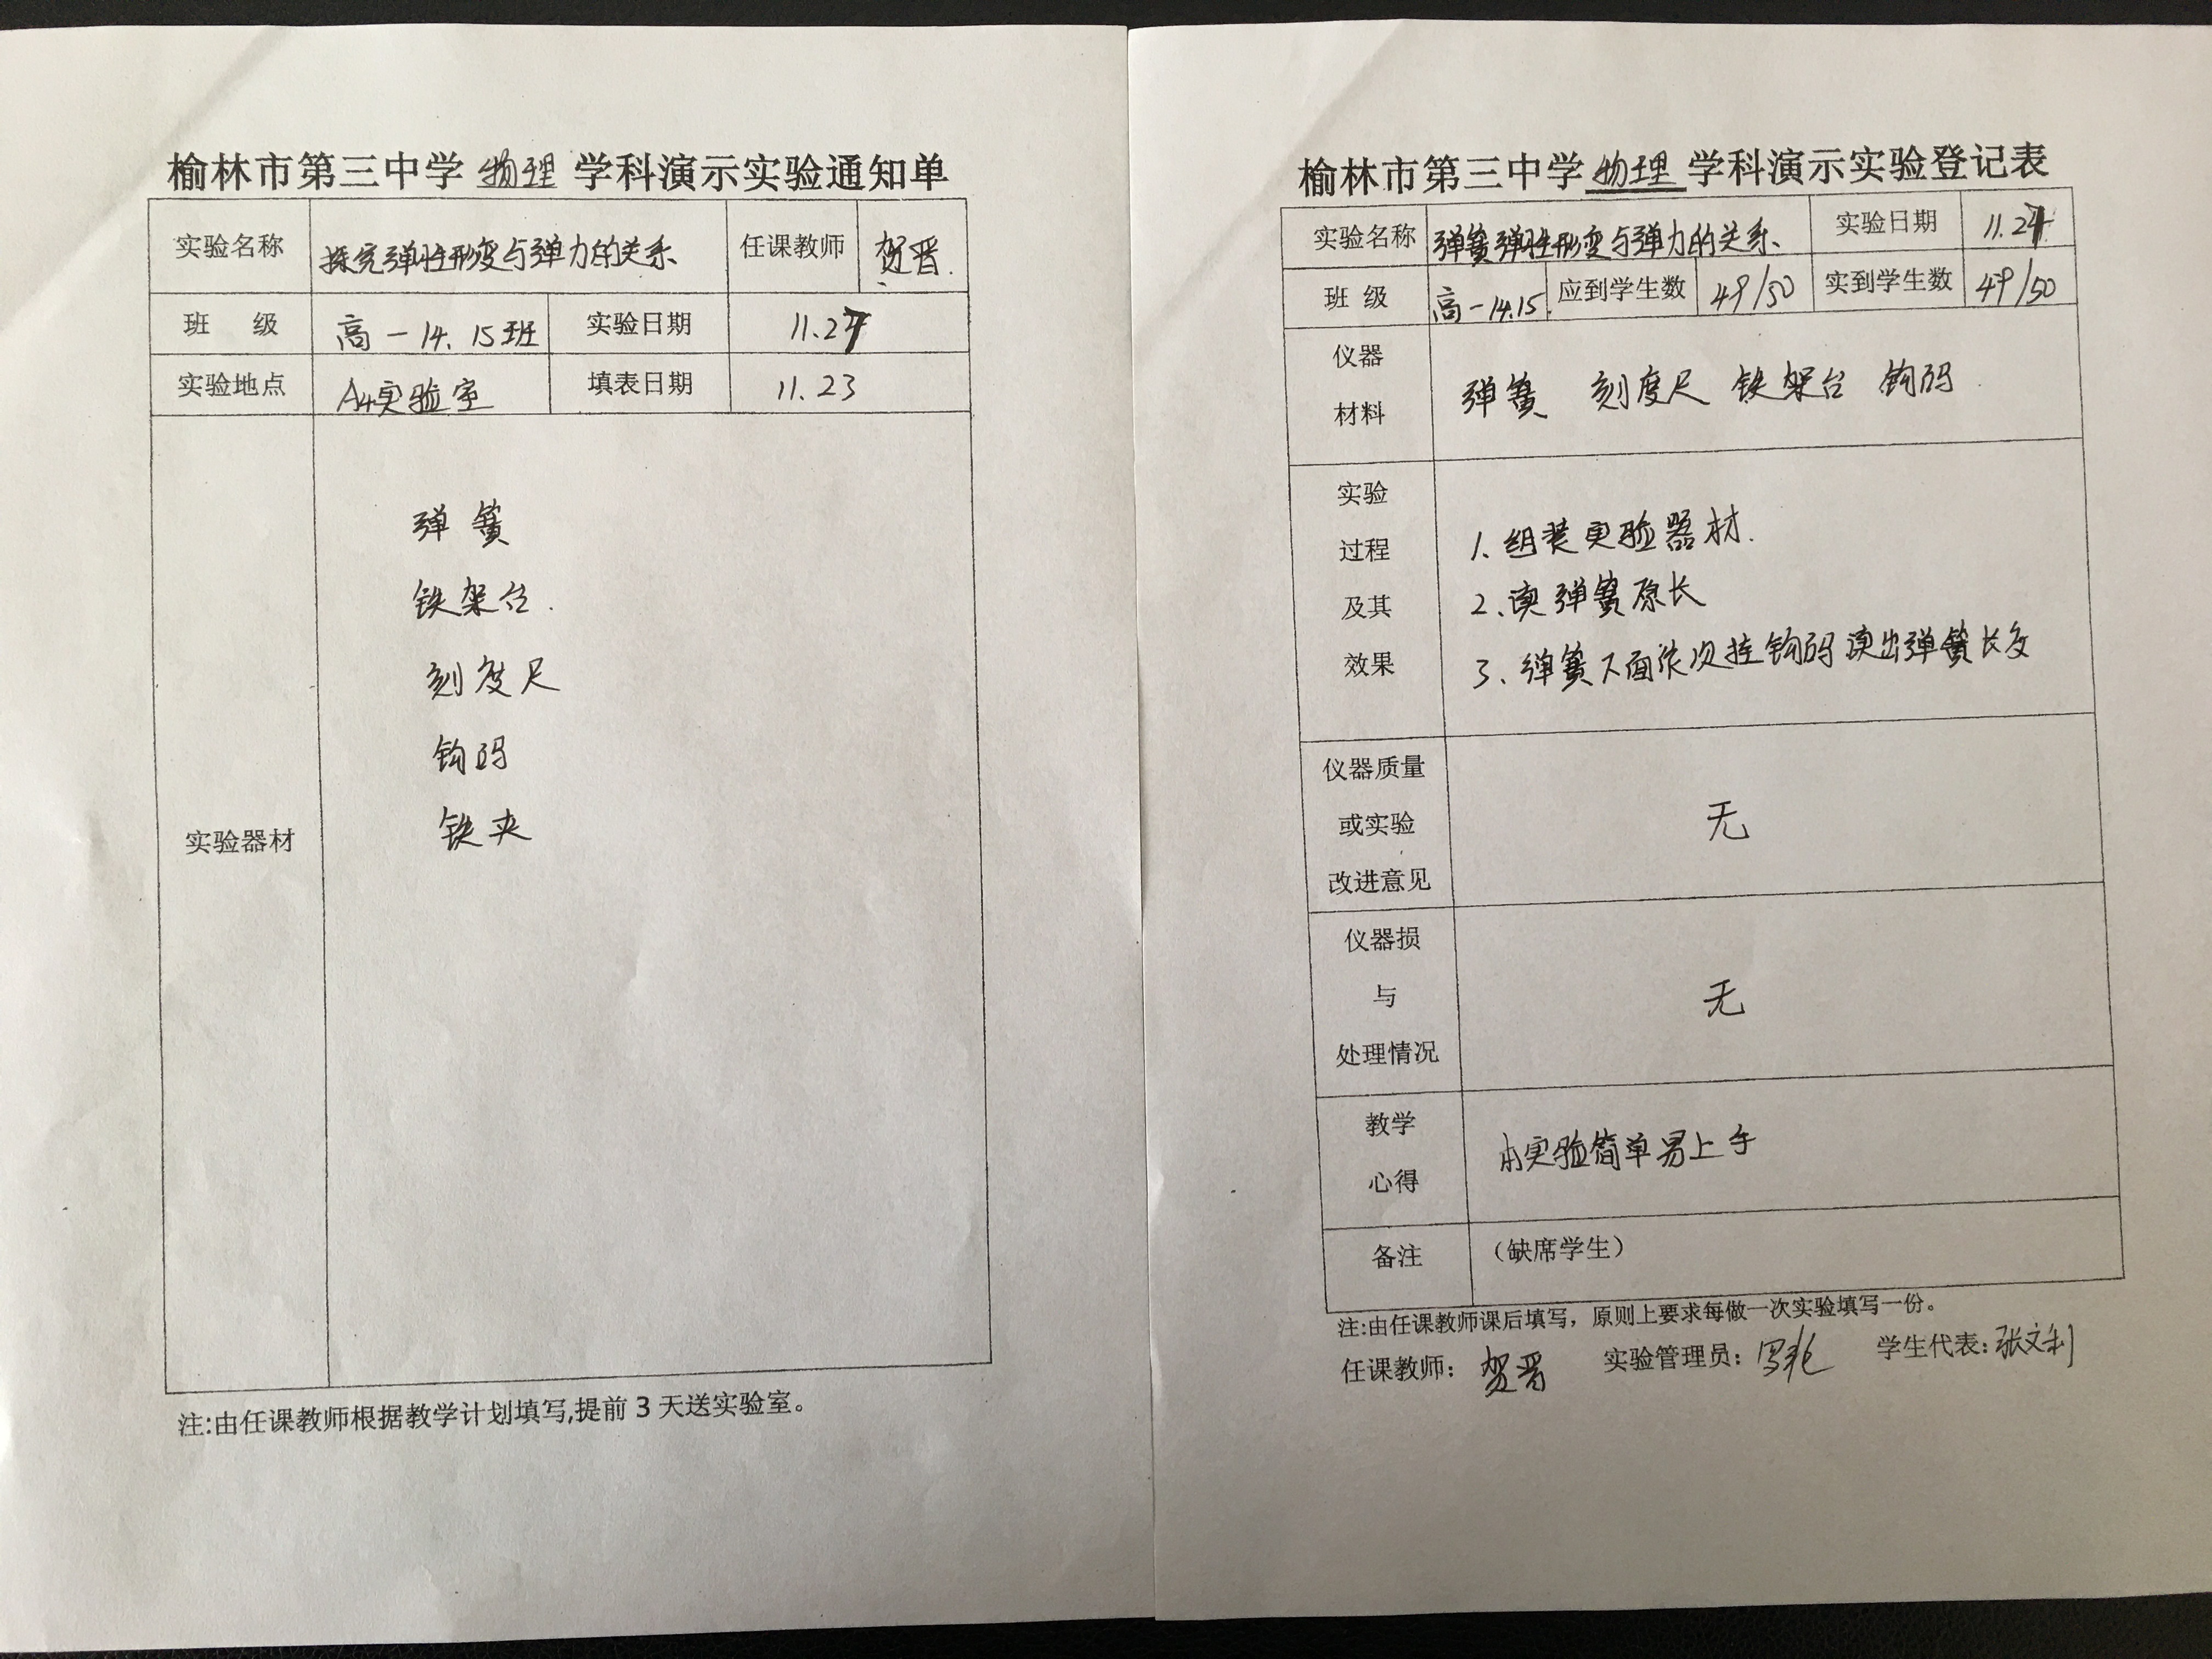 榆林市第三中学 物理 学科演示实验通知单
实验名称 探究弹性形变与弹力的关系 任课教师 贺晋.
班 级 高一14. 15班 实验日期 11.27
实验地点 A4实验室 填表日期 11.23
实验器材
弹簧
铁架台.
刻度尺
钩码
铁夹
注:由任课教师根据教学计划填写,提前 3 天送实验室。
榆林市第三中学 物理 学科演示实验登记表
实验名称 弹簧弹性形变与弹力的关系、 实验日期
班 级 高一14.15. 应到学生数 49/50 实到学生数 49/50
仪器
材料
弹簧 刻度尺 铁架台 钩码
实验
过程
及其
效果
1. 组装实验器材.
2、读弹簧原长
3、弹簧下面依次挂钩码读出弹簧长度
仪器质量
或实验
改进意见
无
仪器损
与
处理情况
无
教学
心得
本实验简单易上手
备注 （缺席学生）
注:由任课教师课后填写，原则上要求每做一次实验填写一份。
任课教师： 贺晋 实验管理员： 学生代表: 张文利